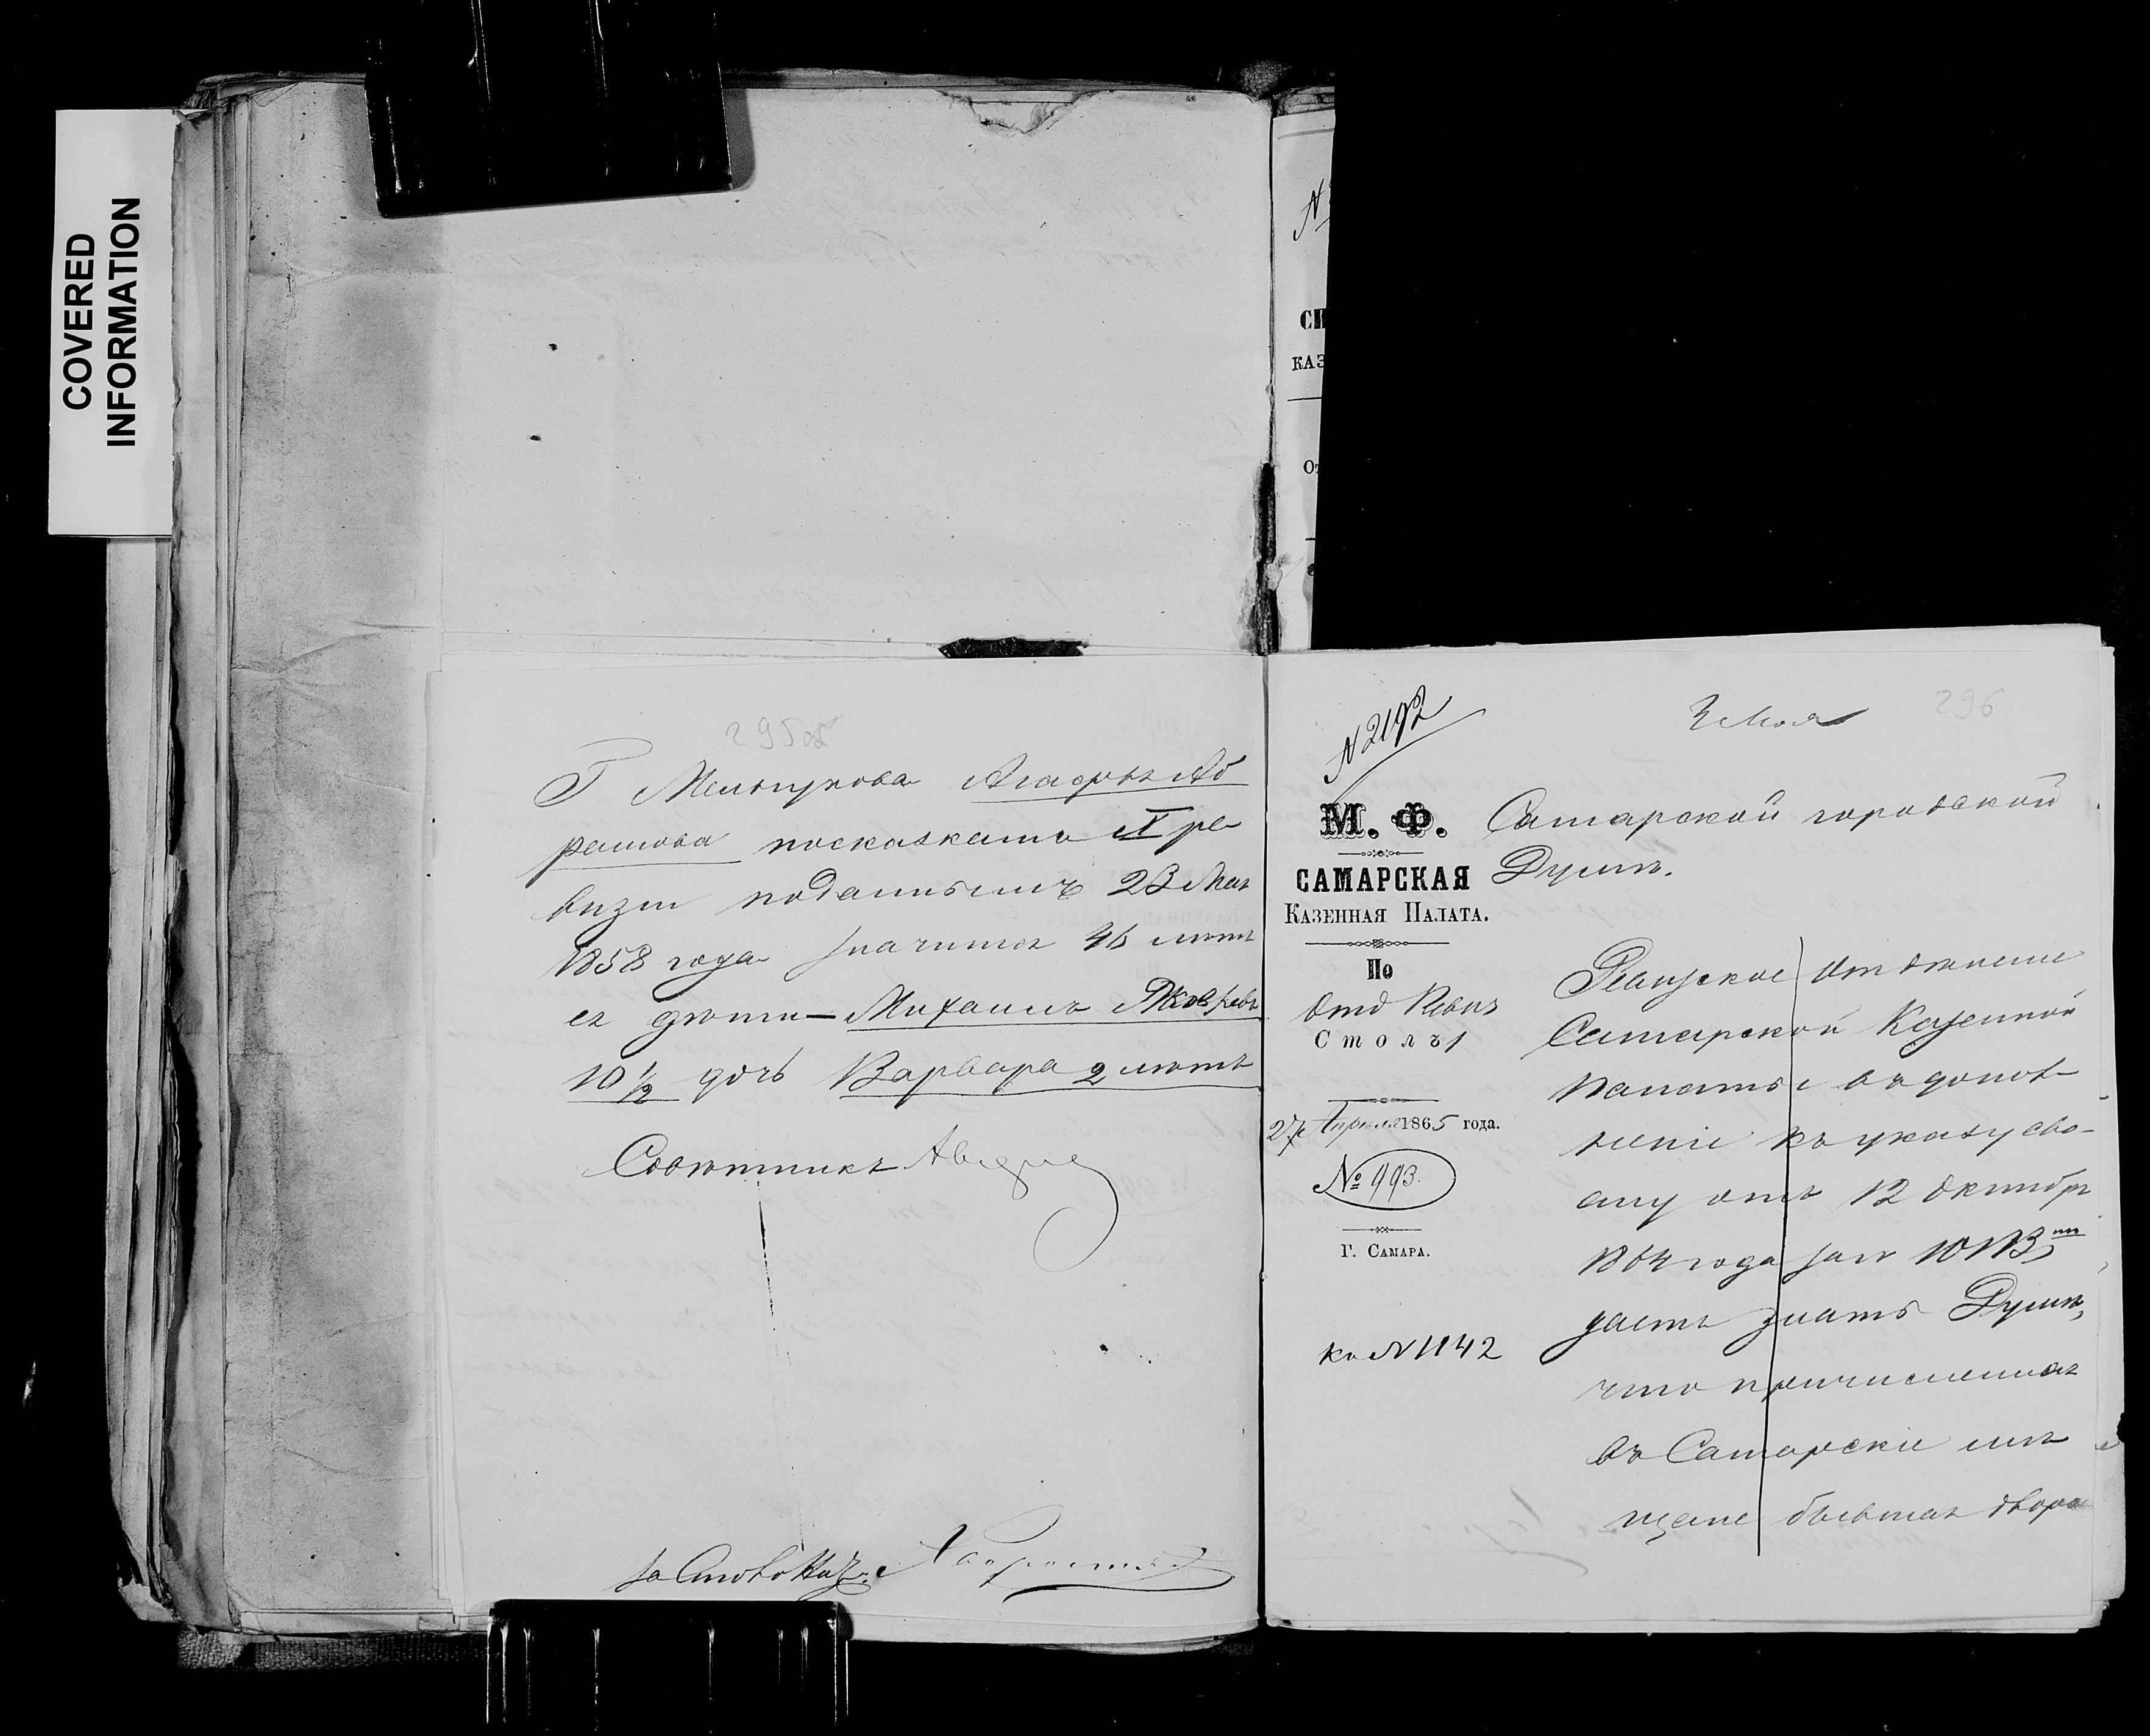 COVERED
INFORMATION
295 об
Г Мельгунова Агафья Аб
рамова посказкамъ X ре
визіи поданнымъ 23 Мая
1858 года значится 46 лѣтъ
ея дѣти — Михаилъ Яковлевъ
10 ½ дочь Варвара 2 лѣтъ
Совѣтникъ
за Столонач.
N
СИ
КАЗ
От
N 2192
3 Мая
296
М. Ф.
САМАРСКАЯ
КАЗЕННАЯ ПАЛАТА.
По
Отд Ревиз
Столъ 1
27 Апрѣля 1865 года.
№ 993.
Г. САМАРА.
къ N 1142
Самарской городской
Думѣ.
Ревизское Отдѣленіе
Самарской Казенной
Палаты въ допол-
неніе къ указу сво-
ему отъ 12 Октября
1864 года за N 10113
даетъ знать Думѣ,
что причисленная
въ Самарскіе мѣ
щане бывшая дворо